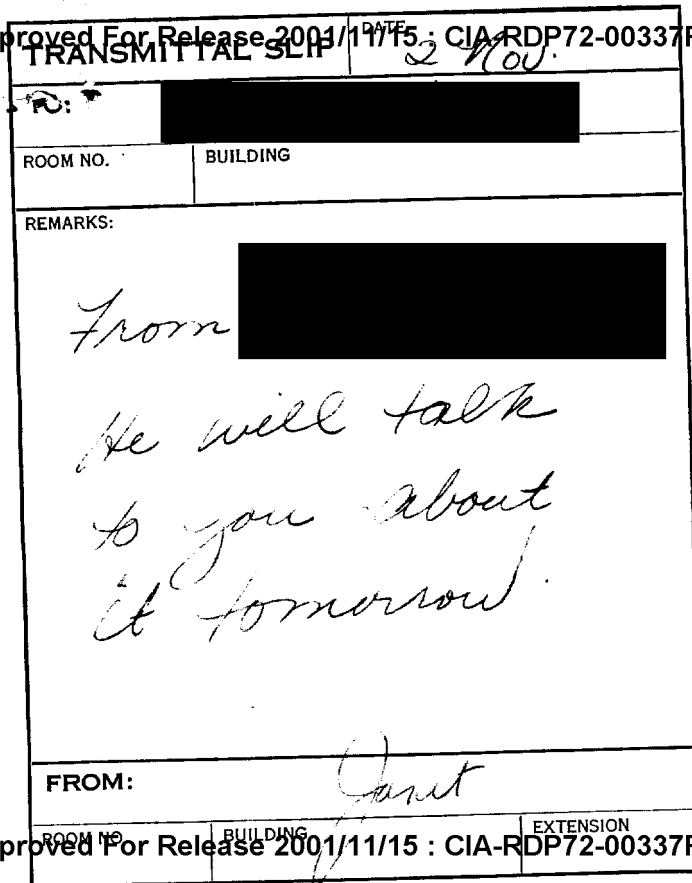 proved For Release 2001/11/15 : CIA-RDP72-00337R
TRANSMITTAL SLIP DATE 2 Nov.
TO:
ROOM NO. BUILDING
REMARKS:
From
He will talk
to you about
it tomorrow.
FROM: Janet
ROOM NO. BUILDING EXTENSION
proved For Release 2001/11/15 : CIA-RDP72-00337R